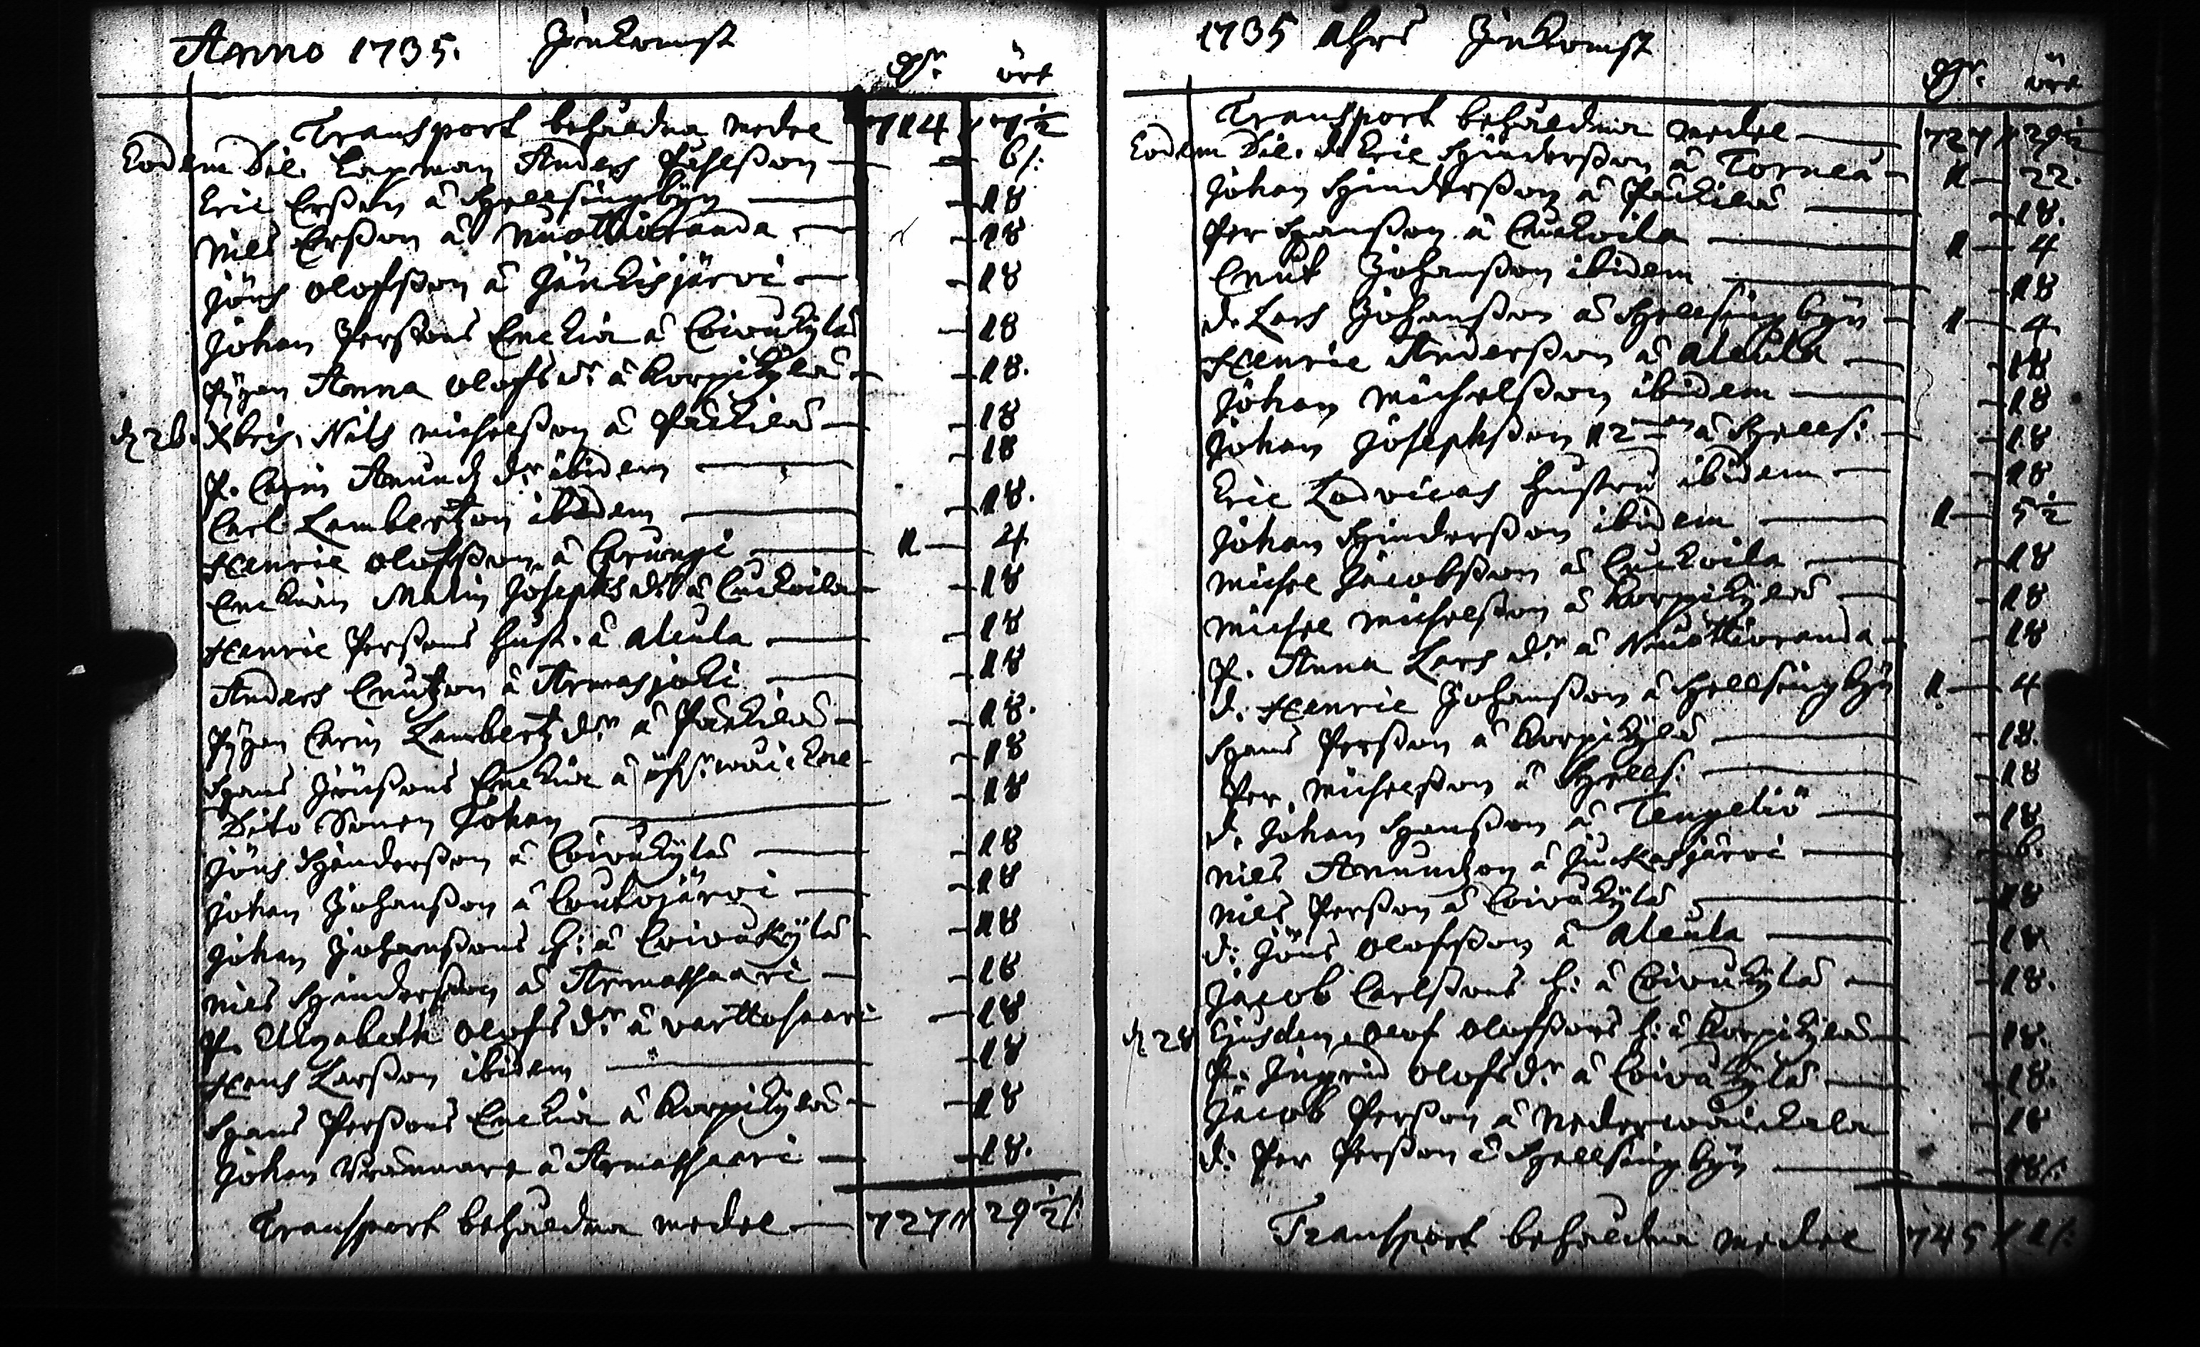 Anno 1735. Inkomst
dhr. öre
Transport behåldna medel — 714 // 7 1/2
Eodem Die. Lapman Anders Påhlßon — 6/:
Eric Erßon â Hellsingbyn — 18
Niels Erßon â Nuottioranda — 18
Jöns Olofsßon â Jänkisjärvi — 18
Johan Perßons Enckia â Coivukylâ 18
Pigan Anna Olofs dr. â Korpikylâ — 18.
d. 26. Xbris. Nils Michelßon â Päckilâ — 18
P. Carin Amunds dr. ibidem — 18
Carl Lambertzon ibidem — 18.
Henric Olofsßon â Corungi — 1 — 4
Enckian Malin Josephs dr. â Cuckoila — 18
Henric Perßons hust. â Alcula — 18
Anders Cnutzon â Armasjoki — 18
Pigan Carin Lambertz dr. â Päckilâ — 18.
Hans Jönßons Enckia â öfr. 18
Dito Sonen Johan — 18
Jöns Hinderßon â Coivukylâ — 18
Johan Johanßon â Coutojärvi — 18
Johan Johanßons h: â Coivukylâ — 18
Niels Hinderßon â Armassaari — 18
P. Elizabeth Olofs dr. â Varttosaari — 18
Hans Larßon ibidem — 18
Hans Perßons Enckia â Korpikylâ — 18
Johan â Armassaari — 18.
Transport behåldna medel — 727 // 29 1/2 /:
1735 åhrs Inkomst
dhr. öre
Transport behåldna medel — 727 // 29 1/2
Eodem Die. d. Eric Hinderßon â Torneå — 1 — 22.
Johan Hinderßon â Päckilâ — 18.
Per Hanßon â Cuckoila — 1 — 4
Cnut Johanßon ibidem — 18
d. Lars Johanßon â Hellsingbyn — 1 — 4
Henric Anderßon â Alcula — 18
Johan Michelßon ibidem — 18
Johan Josephßon 12 â Hells: — 18
Eric Lodvicas hustru ibidem — 18
Johan Hinderßon ibidem — 1 — 5 1/2
Michel Jacobßon â Cuckoila — 18
Michel Michelßon â Korpikylâ — 18
P. Anna Lars dr. â Nuottioranda — 18
d. Henric Johanßon â Hellsingbyn 1 — 4
Hans Perßon â Korpikylâ — 18.
Per Michelßon â Hells: — 18
d. Johan Hanßon â Tengeliö — 18
Niels Amundzon â Juckasjärvi — 6.
Niels Perßon â Coivukylâ — 18
d: Jöns Olofsßon â Alcula — 18
Jacob Carlßons h: â Coivukylâ — 18.
d. 28 Ejusdem. Olof Olofsßons h: â Korpikylâ — 18.
P. Ingrid Olofs dr. â Coivukylâ — 18.
Jacob Perßon â Nederwåickala 18
d: Per Perßon â Hellsingbyn — 18/:
Transport behåldna medel 745 // 11/: